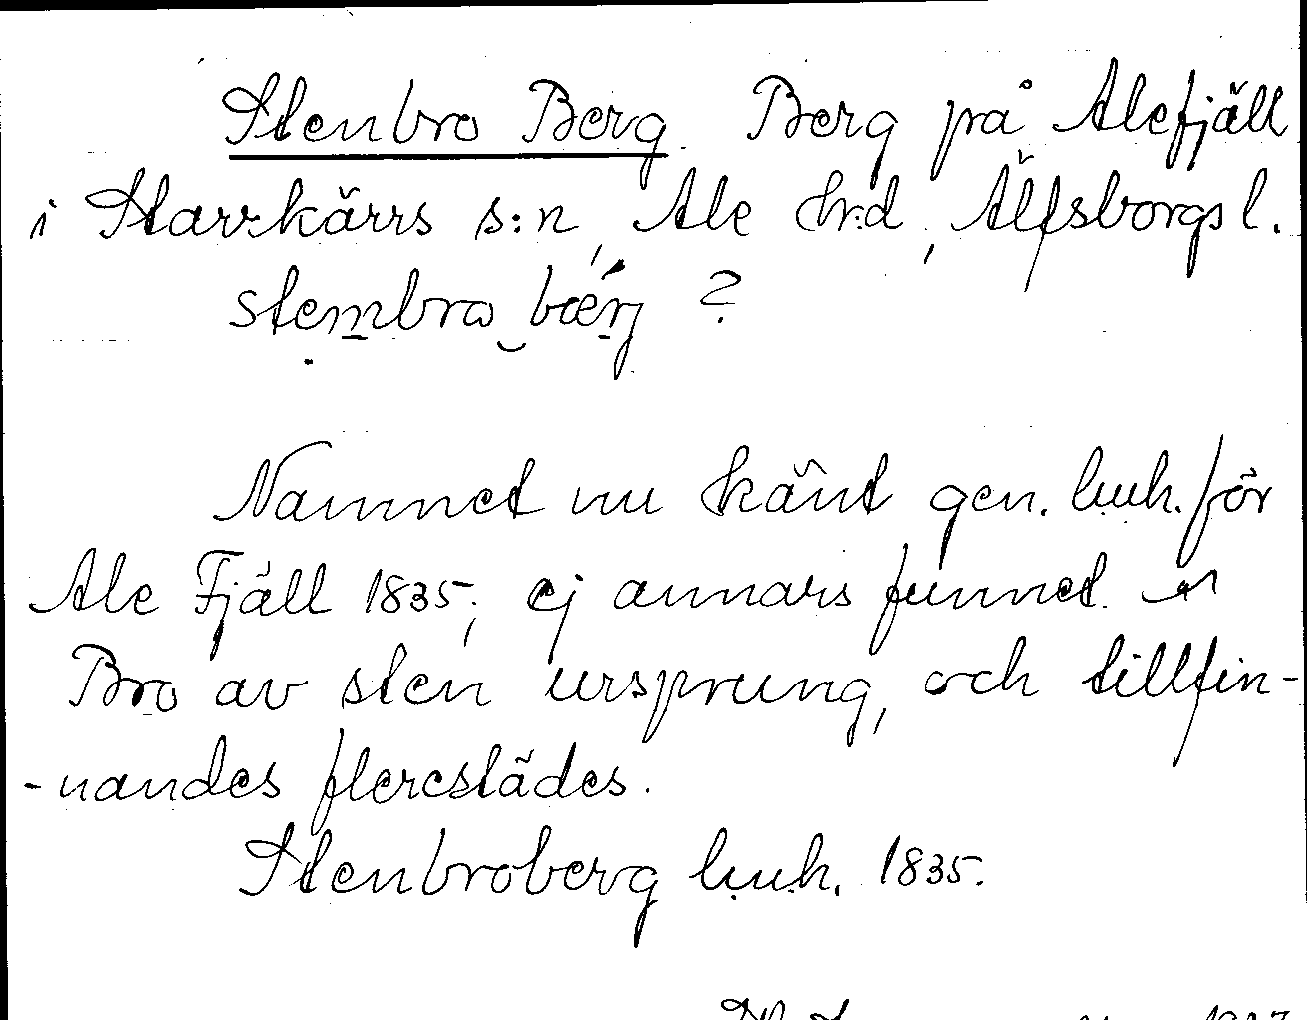 Stenbro Berg. Berg på Alefjäll
i Starrkärrs s:n, Ale hd, Älfsborgs l.
stembro bærj ?
Namnet nu känt gen. luh. för
Ale Fjäll 1835; ej annars funnet.
Bro av sten ursprung, och tillfin-
-nandes flerstädes.
Stenbroberg luh. 1835.